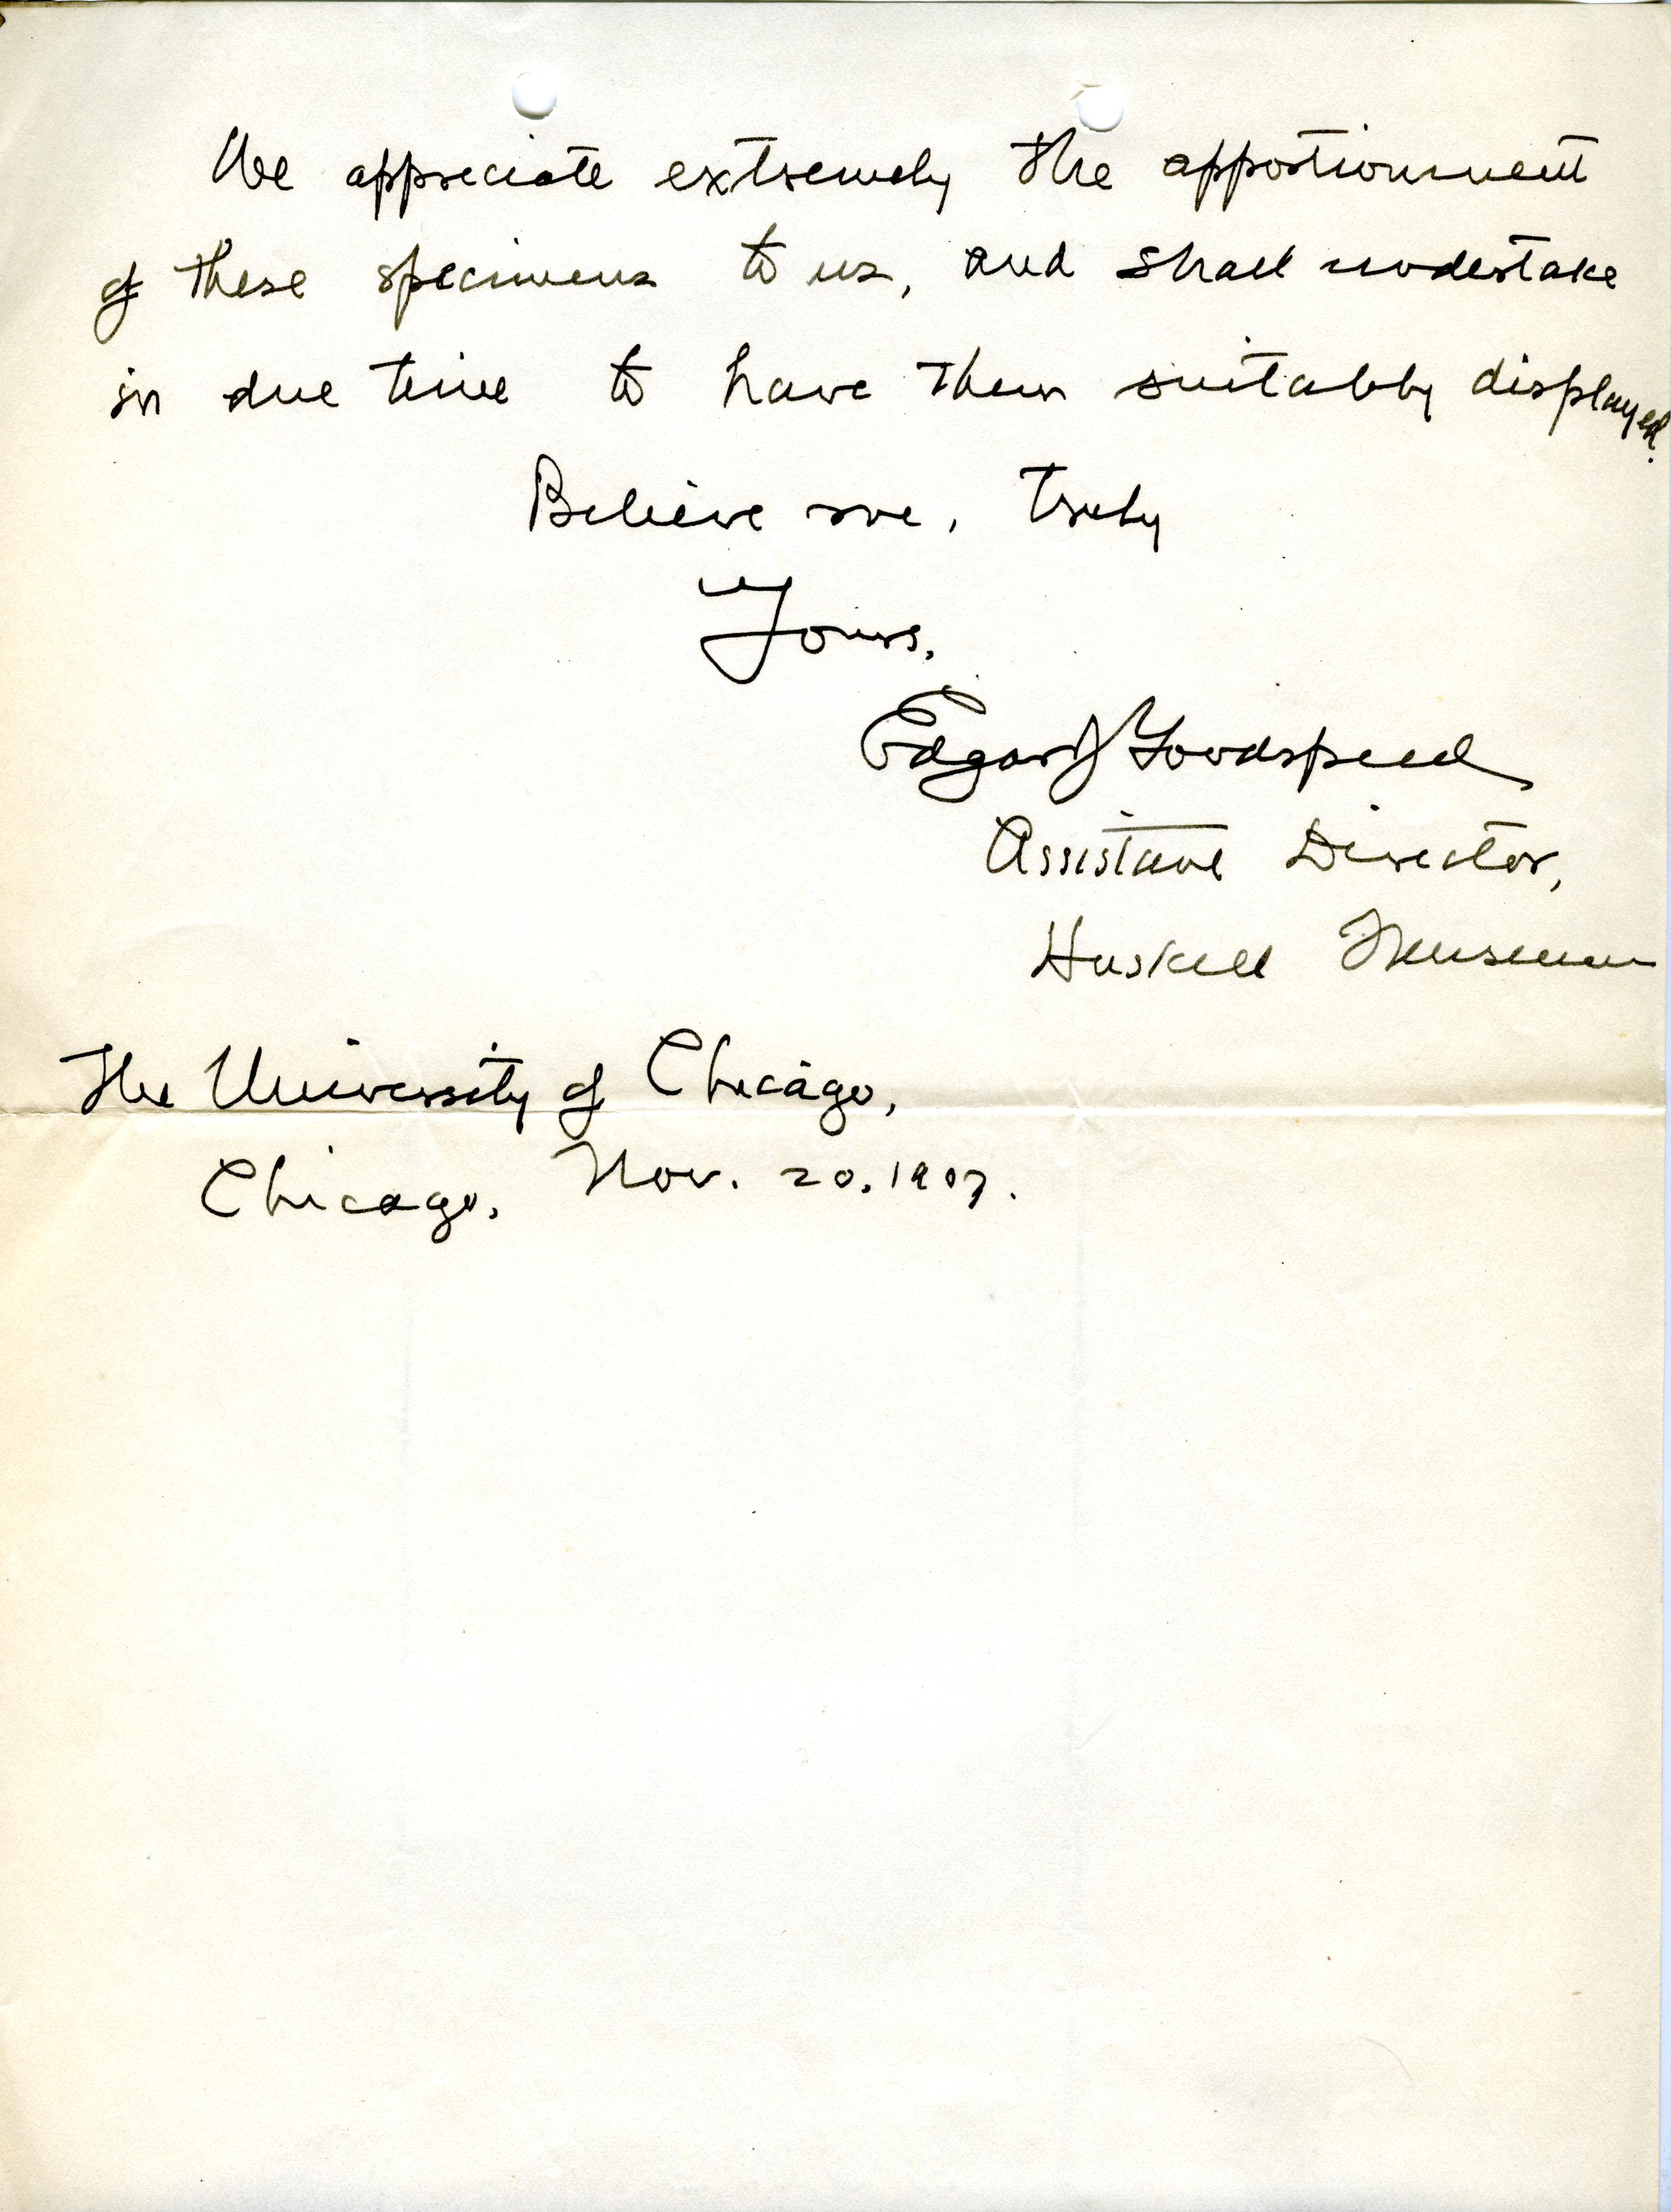 We appreciate extremely the apportionment
of these specimens to us, and shall undertake
in due time to have them suitably displayed.
Believe me, truly
Yours,
Edgar J Goodspeed
Assistant Director,
Haskell Museum
The University of Chicago,
Chicago, Nov. 20, 1907.